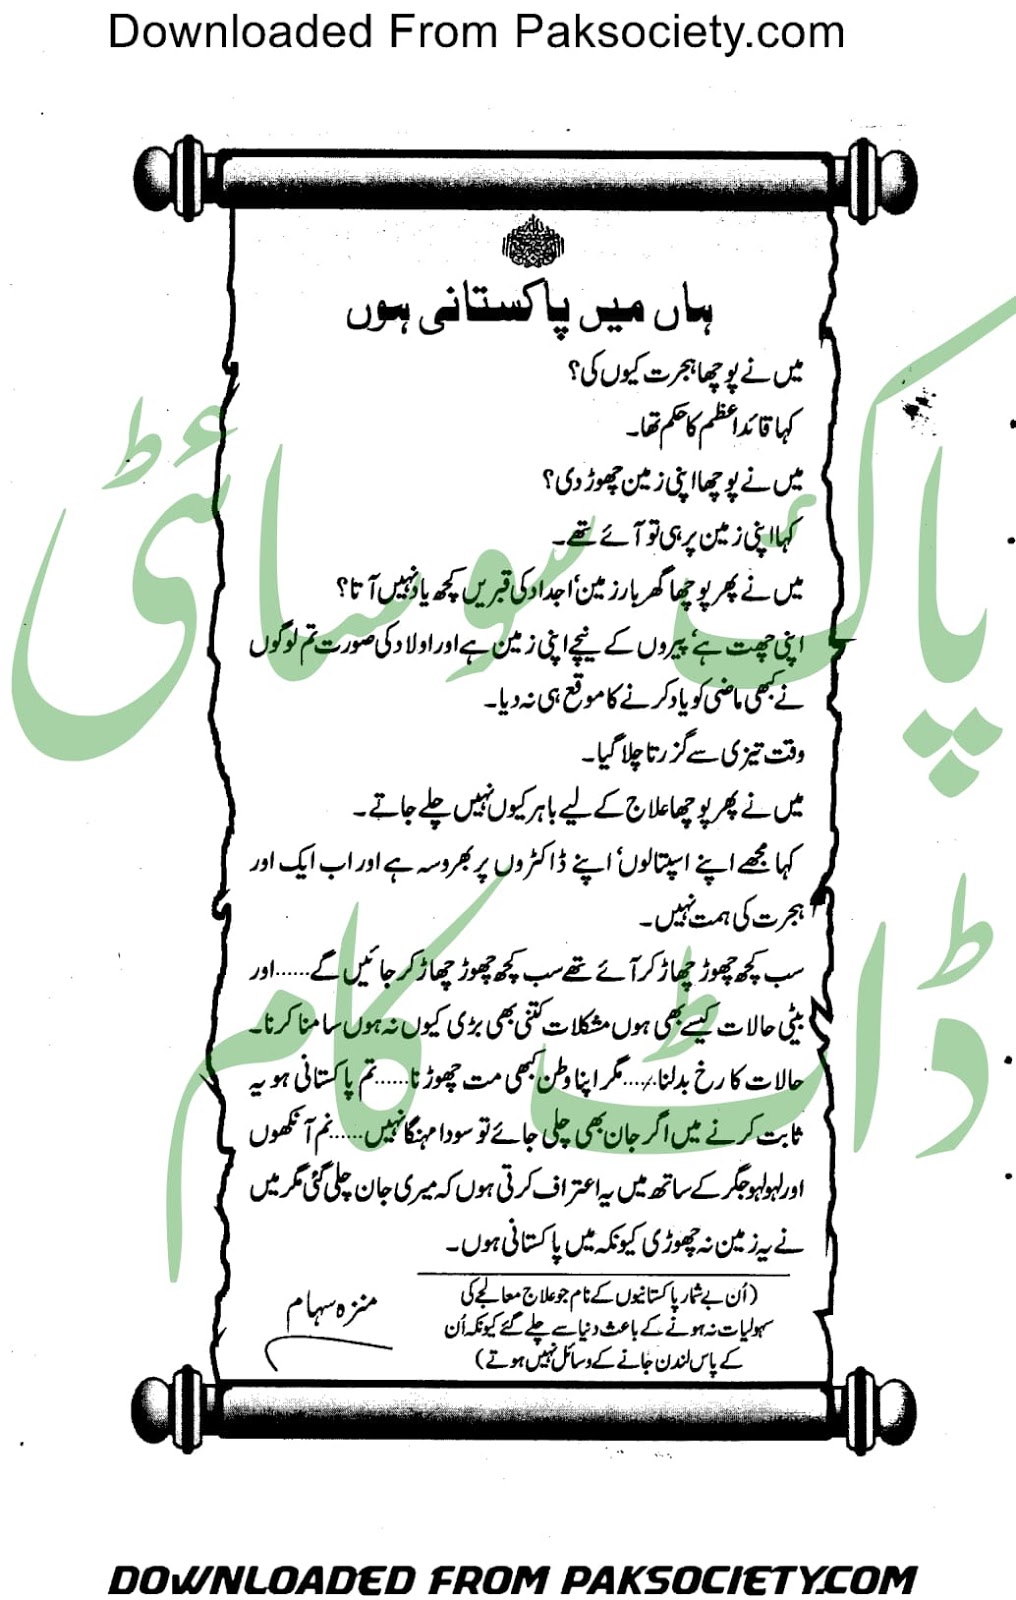 Downloaded From Paksociety.com
ہاں میں پاکستانی ہوں
میں نے پوچھا ہجرت کیوں کی؟
کہا قائداعظم کا حکم تھا۔
میں نے پوچھا اپنی زمین چھوڑ دی؟
کہا اپنی زمین پر ہی تو آئے تھے۔
میں نے پھر پوچھا گھر بار زمین' اجداد کی قبریں کچھ یاد نہیں آتا؟
اپنی چھت ہے' پیروں کے نیچے اپنی زمین ہے اور اولاد کی صورت تم لوگوں
نے کبھی ماضی کو یاد کرنے کا موقع ہی نہ دیا۔
وقت تیزی سے گزرتا چلا گیا۔
میں نے پھر پوچھا علاج کے لیے باہر کیوں نہیں چلے جاتے۔
کہا مجھے اپنے اسپتالوں' اپنے ڈاکٹروں پر بھروسہ ہے اور اب ایک اور
ہجرت کی ہمت نہیں۔
سب کچھ چھوڑ چھاڑ کر آئے تھے سب کچھ چھوڑ چھاڑ کر جائیں گے......اور
بیٹی حالات کیسے بھی ہوں مشکلات کتنی بھی بڑی کیوں نہ ہوں سامنا کرنا۔
حالات کا رخ بدلنا......مگر اپنا وطن کبھی مت چھوڑنا......تم پاکستانی ہو یہ
ثابت کرنے میں اگر جان بھی چلی جائے تو سودا مہنگا نہیں......نم آنکھوں
اور لہو لہو جگر کے ساتھ میں یہ اعتراف کرتی ہوں کہ میری جان چلی گئی مگر میں
نے یہ زمین نہ چھوڑی کیونکہ میں پاکستانی ہوں۔
(اُن بے شمار پاکستانیوں کے نام جو علاج معالجے کی
سہولیات نہ ہونے کے باعث دنیا سے چلے گئے کیونکہ اُن
کے پاس لندن جانے کے وسائل نہیں ہوتے)
منزہ سہام
پاک سوسائٹی
ڈاٹ کام
DOWNLOADED FROM PAKSOCIETY.COM